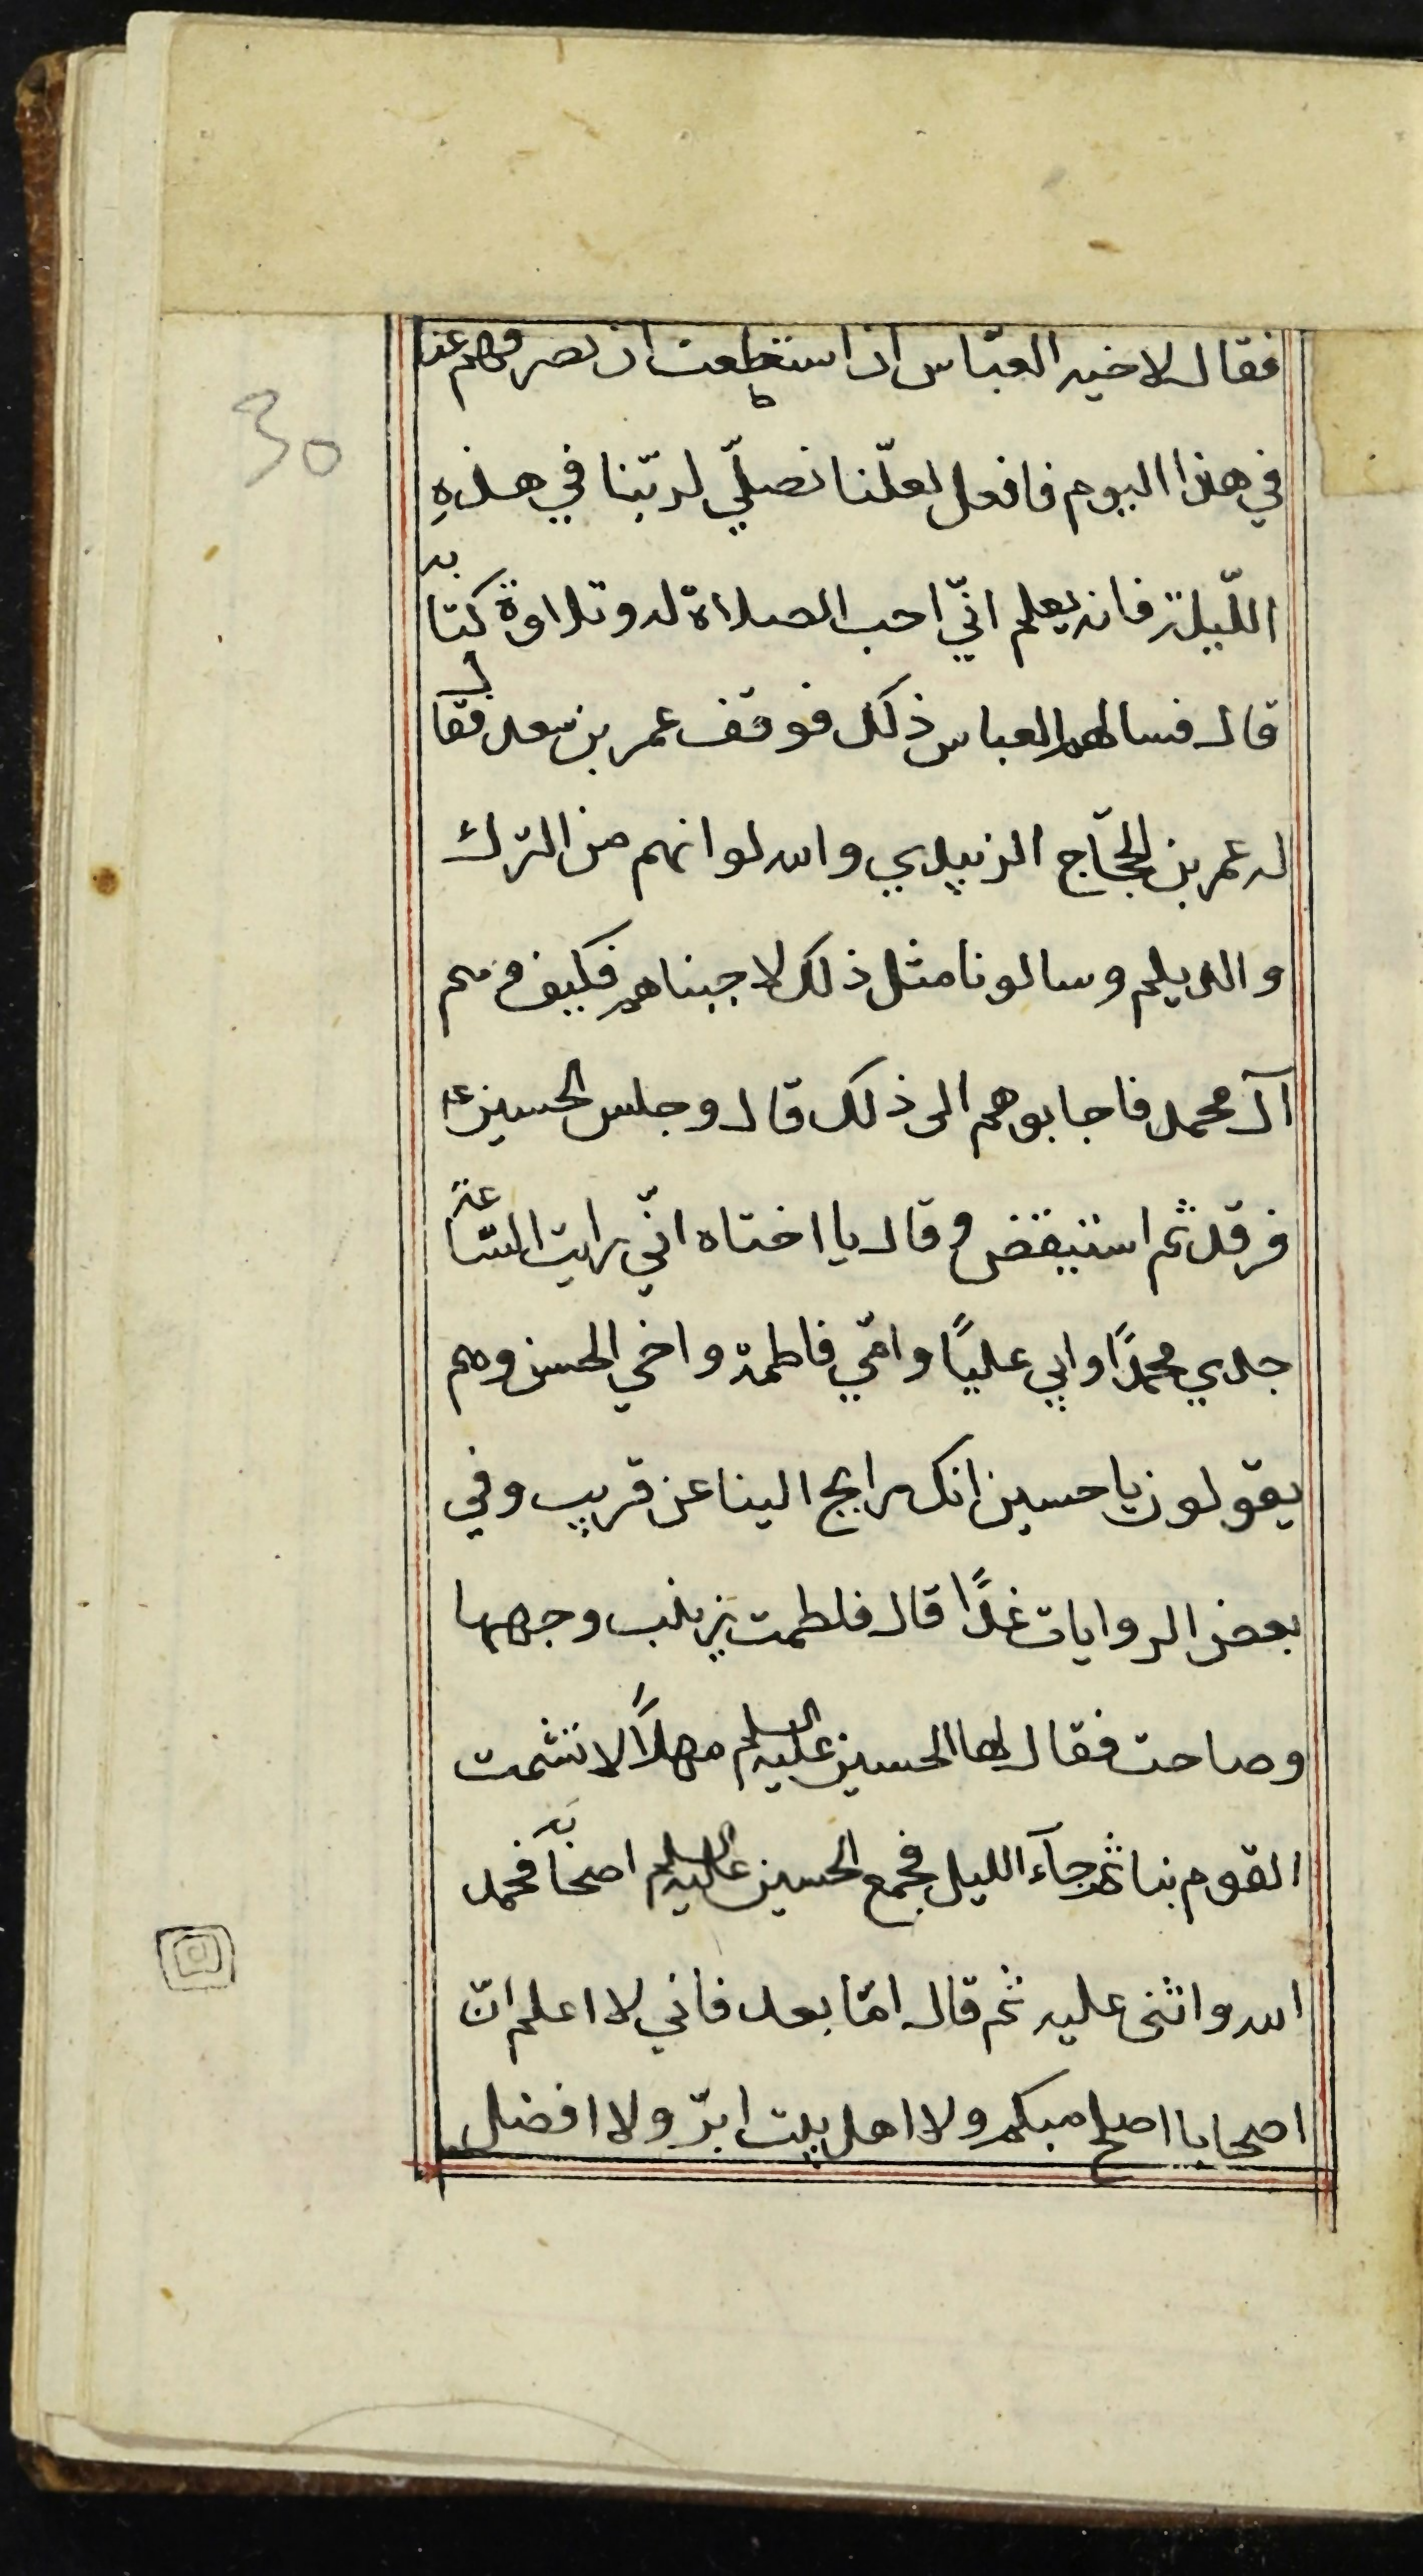 فقال لاخيه العبّاس ان استطعت ان تصرفهم عنا
30
في هذا اليوم فافعل لعلّنا نصلّي لربّنا في هذهِ
اللّيلة فانه يعلم انّي احب الصلاة له وتلاوة كتابه
قال فسالهم العباس ذلك فوقف عمر بن سعد فقال
له عمر بن الحجّاج الزبيدي والله لو انهم من الترك
والديلم وسالونا مثل ذلك لاجبناهم فكيف وهم
آل محمد فاجابوهم الى ذلك قال وجلس الحسين ع
فرقد ثم استيقض وقال يا اختاه انّي رايت السّاعة
جدي محمدًا وابي عليًا وامّي فاطمة واخي الحسن وهم
يقولون يا حسين انك رايح الينا عن قريب وفي
بعض الروايات غدًا قال فلطمت زينب وجهها
وصاحت فقال لها الحسين عليه السلم مهلاً لا تشمت
القوم بنا ثم جآء الليل فجمع الحسين عليه السلم اصحابه فحمد
الله واثنى عليه ثم قال امّا بعد فاني لا اعلم انّ
اصحابا اصلح منكم ولا اهل بيت ابرّ ولا افضل